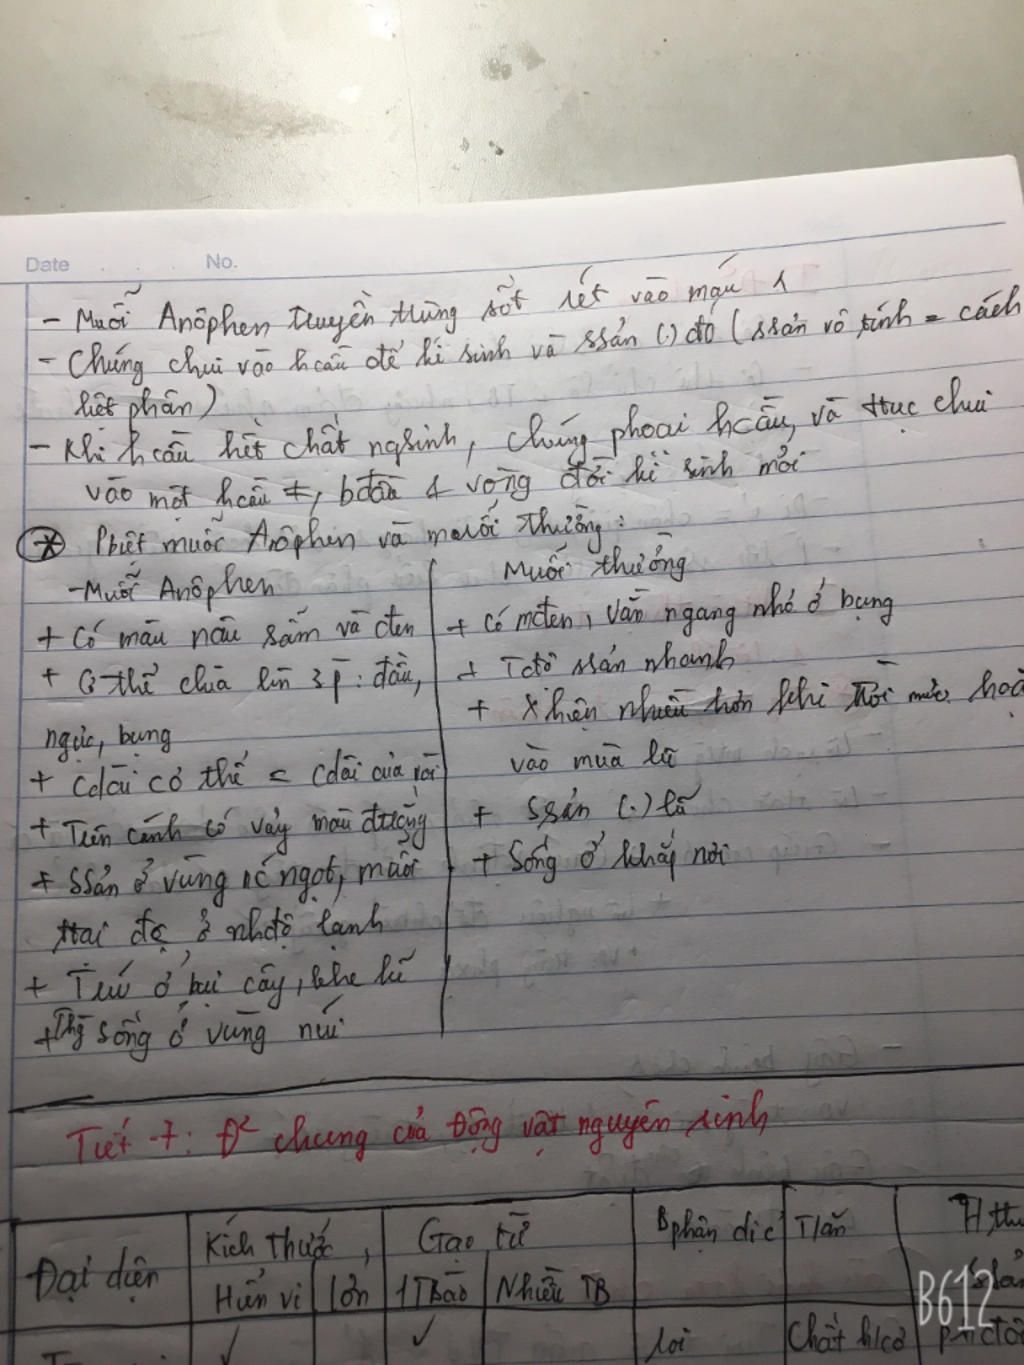 Date No.
- Muỗi Anôphen truyền trùng sốt rét vào máu
- Chúng chui vào hcầu để kí sinh và ssản (.) đó (ssản vô tính = cách
liệt phân)
- Khi hcầu hết chất ngsinh, chúng phoại hcầu, và ttục chui
vào một hcầu ≠, bđầu 1 vòng đời kí sinh mới
* Pbiệt muỗi Anôphen và muỗi thường:
- Muỗi Anôphen
+ Có màu nâu sẫm và đen
+ Có thể chia lìn 3 p: đầu,
ngực, bụng
+ Cdài có thể = Cdài của vòi
+ Trên cánh có vảy màu
+ Ssản ở vùng nc ngọt, muỗi
ttai đẻ ở nhđộ lạnh
+ Trú ở bụi cây, khe
+ sống ở vùng núi
Muỗi thường
+ Có mđen, vằn ngang nhỏ ở bụng
+ Tđộ ssản nhanh
+ Xhiện nhiều hơn khi trời mưa hoặ
vào mùa lũ
+ Ssản (.) lũ
+ Sống ở khắp nơi
Tiết 7: Đ² chung của Động vật nguyên sinh
Đại diện Kích thước Gạo từ Bphận di c T/ăn H thứ
Hiển vi lớn 1TBào Nhiều TB Ssản
✓ ✓ roi Chất h/cơ
B612